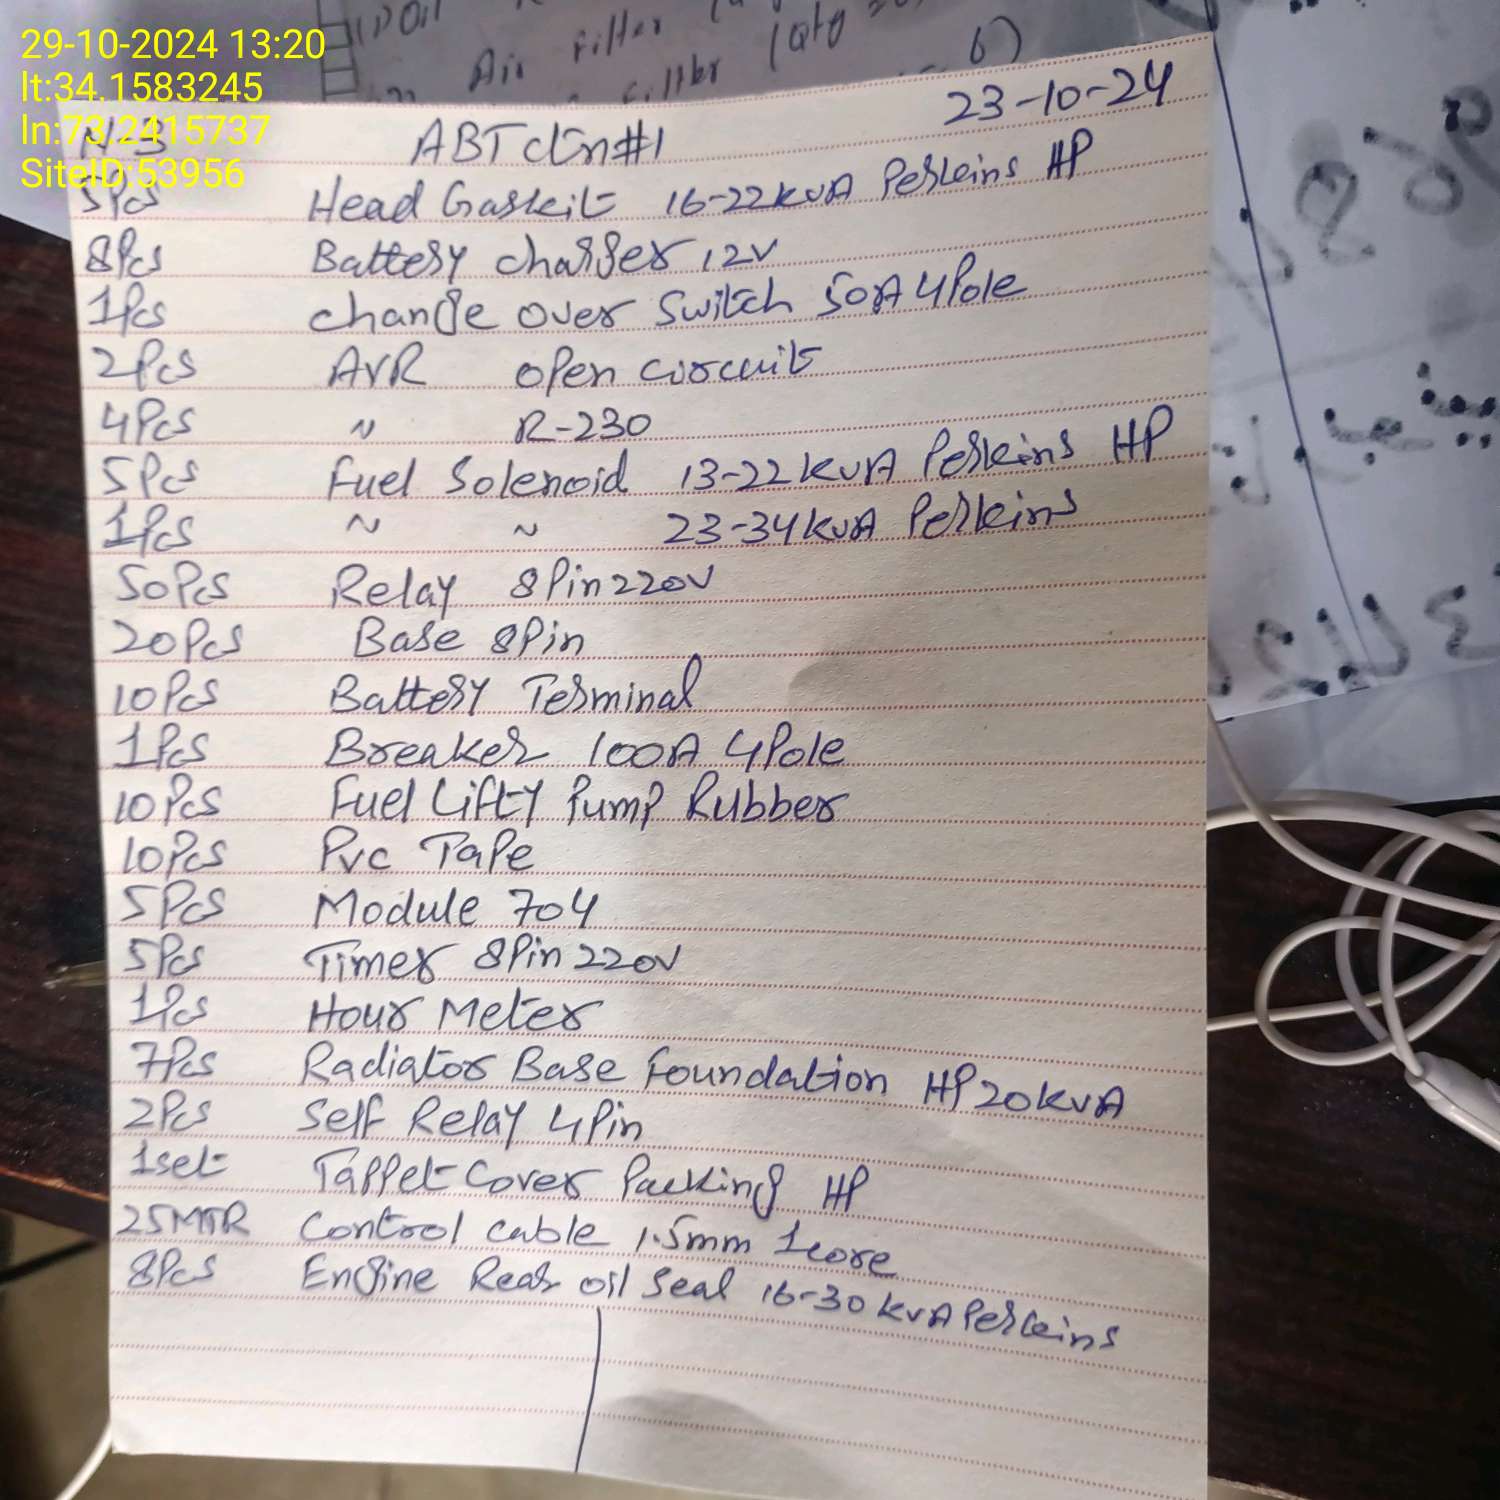 29-10-2024 13:20
lt:34.1583245
ln:73.2415737
SiteID:53956
Air Filter
(Qty
6)
23-10-24
N-3 ABT ctn#1
5Pcs Head Gaskeit 16-22KVA Perkins HP
8Pcs Battery charger 12V
1Pcs change over Switch 50A 4Pole
2Pcs AVR open circuit
4Pcs ~ R-230
5Pcs Fuel Solenoid 13-22KVA Perkins HP
1Pcs ~ ~ 23-34KVA Perkins
50Pcs Relay 8Pin 220V
20Pcs Base 8Pin
10Pcs Battery Terminal
1Pcs Breaker 100A 4Pole
10Pcs Fuel Lifty Pump Rubber
10Pcs Pvc Tape
5Pcs Module 704
5Pcs Timer 8Pin 220V
1Pcs Hour Meter
7Pcs Radiator Base Foundation HP 20KVA
2Pcs Self Relay 4Pin
1set Tappet Cover Packing HP
25MTR Control cable 1.5mm 1core
8Pcs Engine Rear oil Seal 16-30KVA Perkins